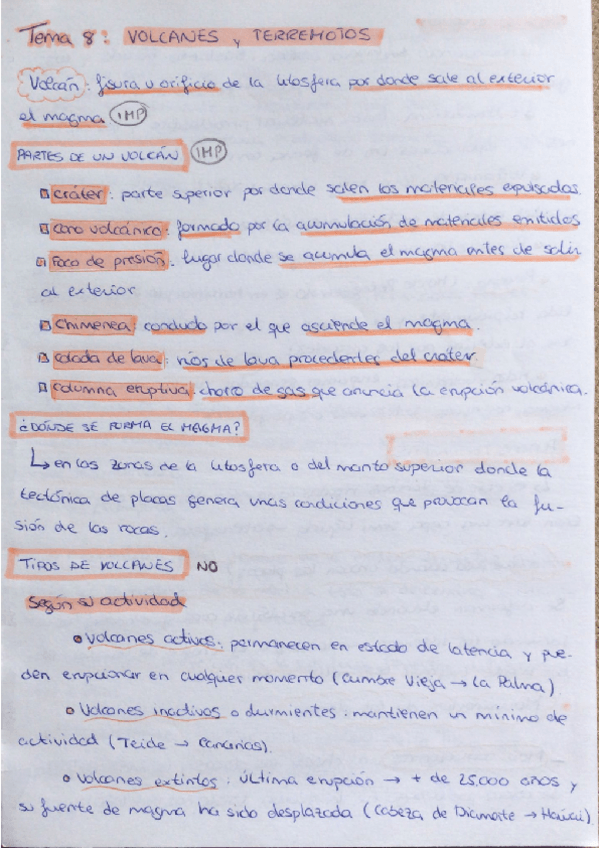 Tema 8: VOLCANES y TERREMOTOS
Volcán: fisura u orificio de la litosfera por donde sale al exterior
el magma IMP
PARTES DE UN VOLCÁN IMP
cráter: parte superior por donde salen los materiales expulsados.
cono volcánico: formado por la acumulación de materiales emitidos
Foco de presión: lugar donde se acumula el magma antes de salir
al exterior
chimenea: conducto por el que asciende el magma.
colada de lava: ríos de lava procedentes del cráter.
columna eruptiva: chorro de gas que anuncia la erupción volcánica.
¿DÓNDE SE FORMA EL MAGMA?
↳ en las zonas de la litosfera o del manto superior donde la
tectónica de placas genera unas condiciones que provocan la fu-
sión de las rocas.
TIPOS DE VOLCANES NO
Según su actividad
• Volcanes activos: permanecen en estado de latencia y pue-
den erupcionar en cualquier momento (Cumbre Vieja → La Palma).
• Volcanes inactivos o durmientes: mantienen un mínimo de
actividad (Teide → Canarias).
• Volcanes extintos: última erupción → + de 25.000 años y
su fuente de magma ha sido desplazada (Cabeza de Diamante → Hawai)